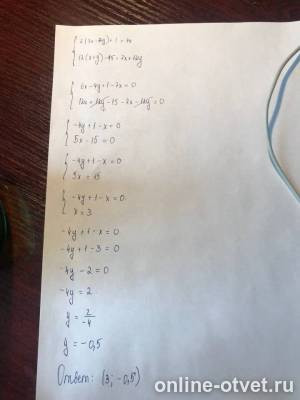 2(3x-2y)+1=7x
12(x+y)-15=7x+12y
6x-4y+1-7x=0
12x+12y-15-7x-12y=0
-4y+1-x=0
5x-15=0
-4y+1-x=0
5x=15
-4y+1-x=0
x=3
-4y+1-x=0
-4y+1-3=0
-4y-2=0
-4y=2
y=2/-4
y=-0,5
Ответ: (3; -0,5)
online-otvet.ru